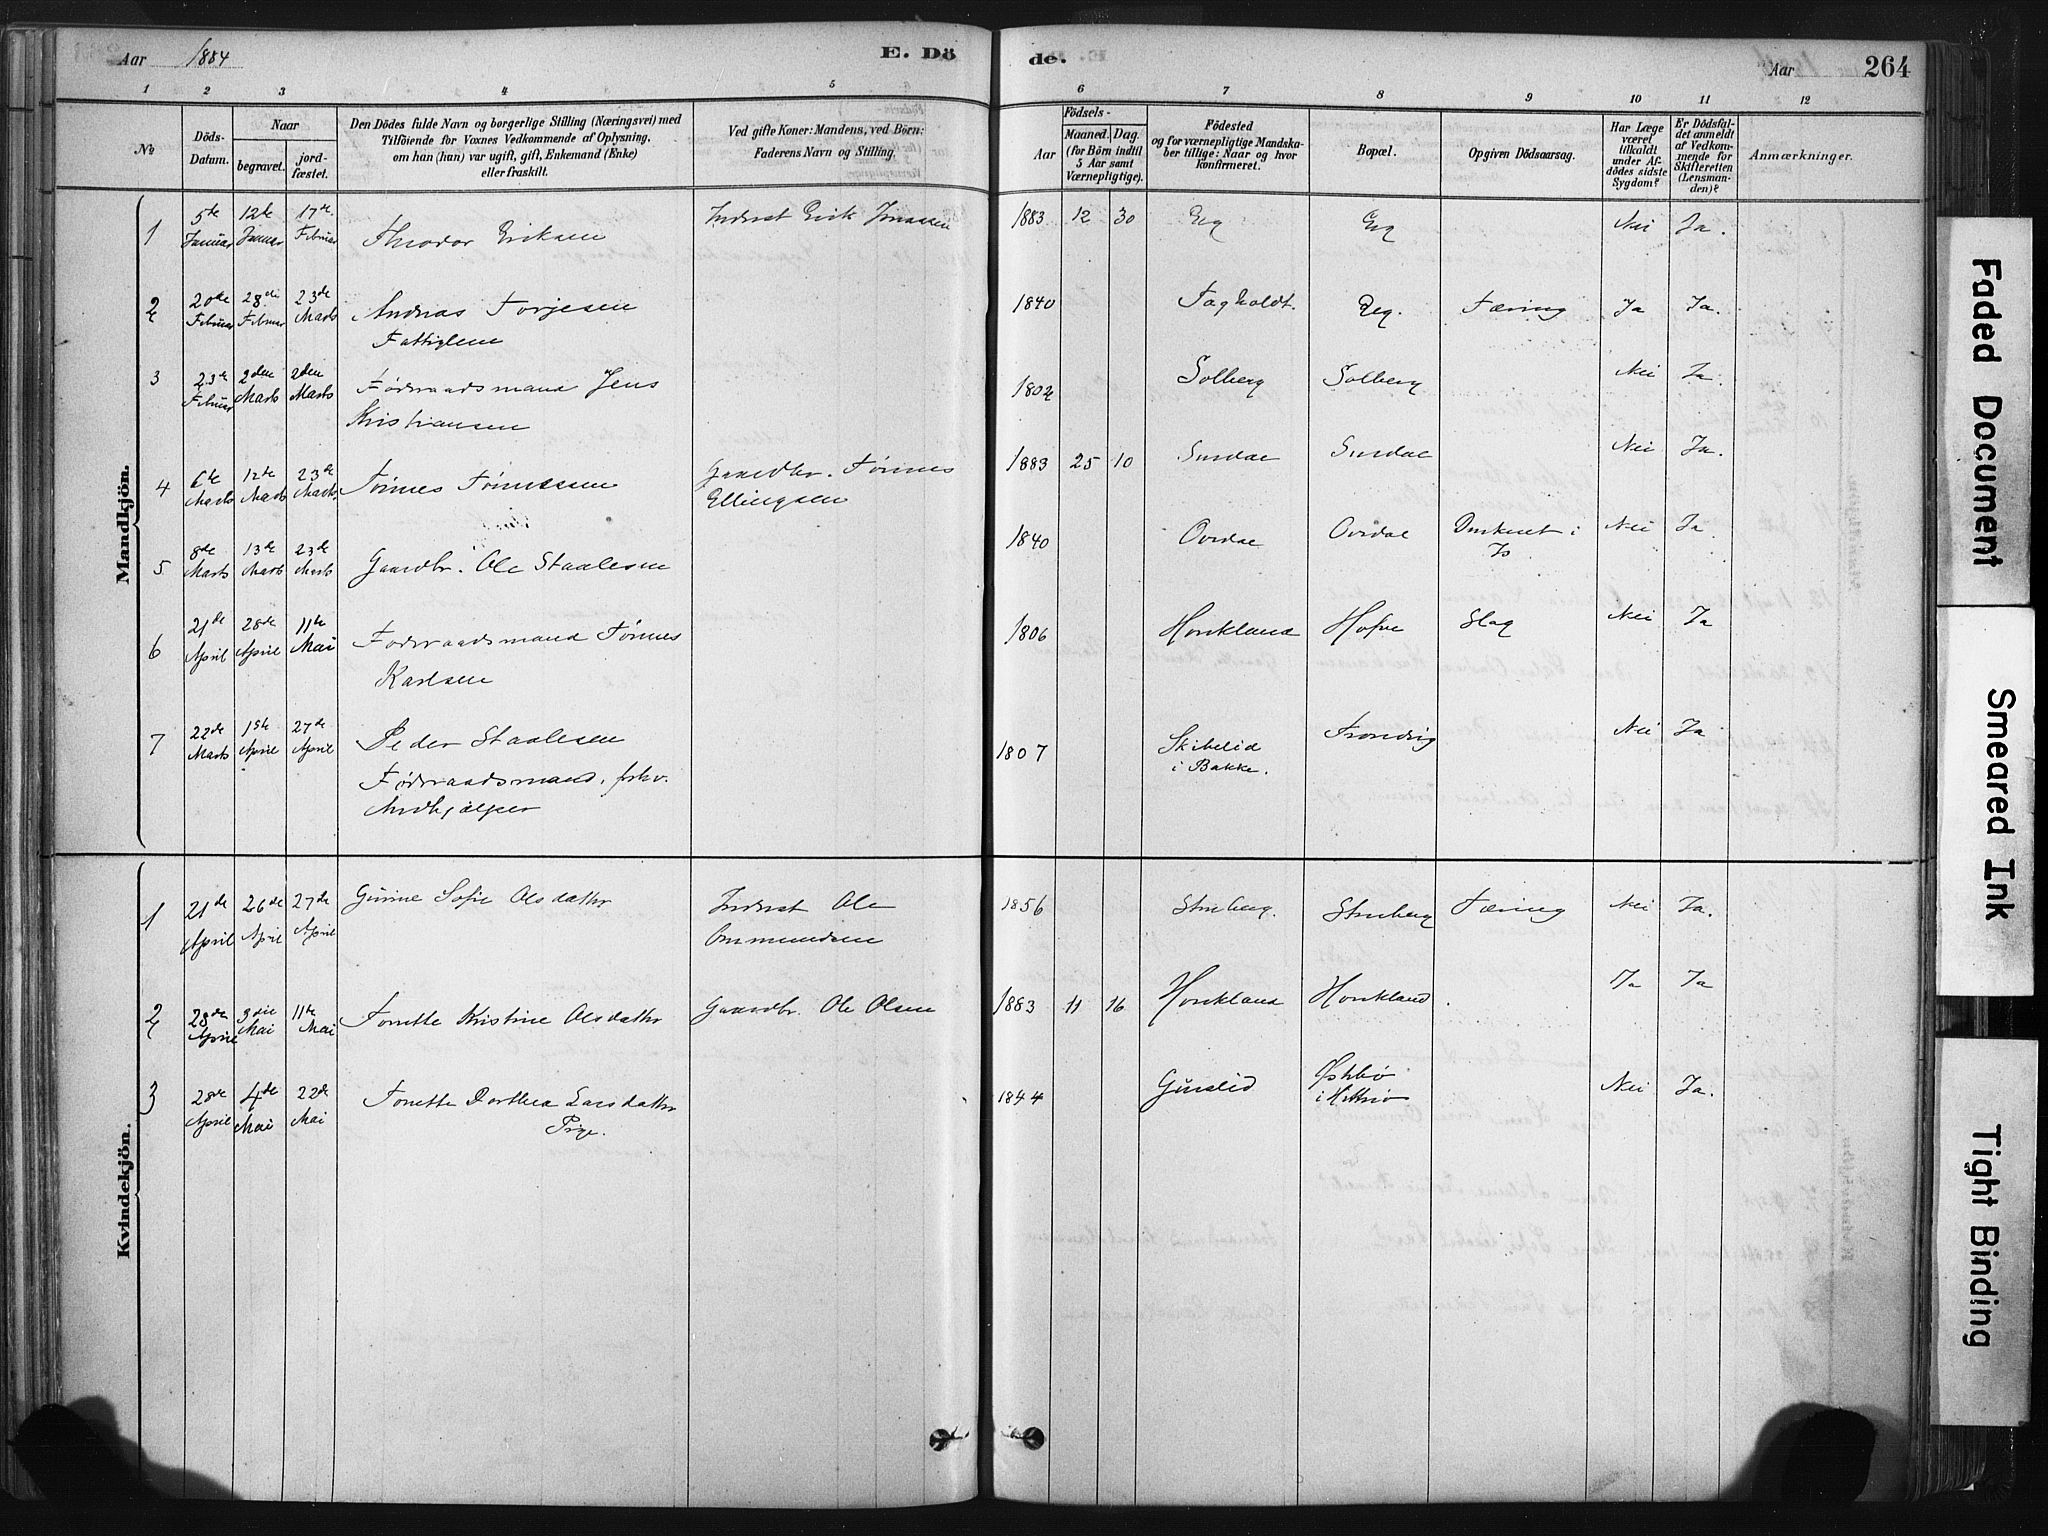 Aar 1884 E. Dö
de. Aar 264
1 2 3 4 5
6 7 8 9 10 11 12
No
Döds-
Datum.
Naar
begravet.
jord-
fæstet.
Den Dödes fulde Navn og borgerlige Stilling (Næringsvei) med
Tilföiende för Voxnes Vedkommende af Oplysning,
om han (hun) var ugift, gift, Enkemand (Enke)
eller fraskilt.
Ved gifte Koner: Mandens, ved Börn:
Faderens Navn og Stilling.
Födsels-
Aar
Maaned. Dag.
(for Börn indtil
5 Aar samt
Værnepligtige).
Födested
og for værnepligtige Mandska-
ber tillige: Naar og hvor
konfirmeret.
Bopæl.
Opgiven Dödsaarsag.
Har Læge
været
tilkaldt
under Af-
dödes sidste
Sygdom?
Er Dödsfal-
det anmeldt
af Vedkom-
mende for
Skifteretten
(Lensman-
den)?
Anmærkninger.
Mandkjön.
1 5te Januar 12te Januar 17de Februar Theodor Eriksen Inderst Erik 1883 12 30 Eeg Eeg Nei Ja.
2 20de Februar 28de Februar 23de Marts Andreas Torjesen 1840 Fagholdt. Eeg. Tæring Ja Ja.
Fattiglem
3 23de Februar 2den Marts 2den Marts Föderaadsmand Jens 1802 Solberg Solberg Nei Ja.
Kristiansen
4 6te Marts 12te Marts 23de Marts. Tönnes Tönnessen Gaardbr. Tönnes 1883 25 10 Surdal Surdal Nei Ja.
Ellingsen
5 8de Marts 13de Marts 23de Marts Gaardbr. Ole Staalesen 1840 Ovedal Ovedal Druknet i Nei Ja.
Is
6 21de April 28de April 11te Mai Föderaadsmand Tönnes 1806 Houkland Hofve Slag Nei Ja
Karlsen
7 22de Marts 1ste April 27de April Peder Staalesen 1807 Skibelid Nei Ja
i Bakke.
Föderaadsmand, forhv.
Medhjælper
Kvindekjön.
1 21de April 26de April 27de April Gurine Sofie Olsdatter Inderst Ole 1856 Struberg. Struberg Tæring Nei Ja.
Ommundsen
2 28de April 3die Mai 11te Mai Tonette Kristine Olsdatter Gaardbr. Ole Olsen 1883 11 16 Houkland Houkland. Ja Ja
3 28de April 4de Mai 22de Mai Tonette Dorthea Larsdatter 1844 Gurslid Østebø Nei Ja.
i Hitterø
Pige.
Faded Document
Smeared Ink
Tight Binding